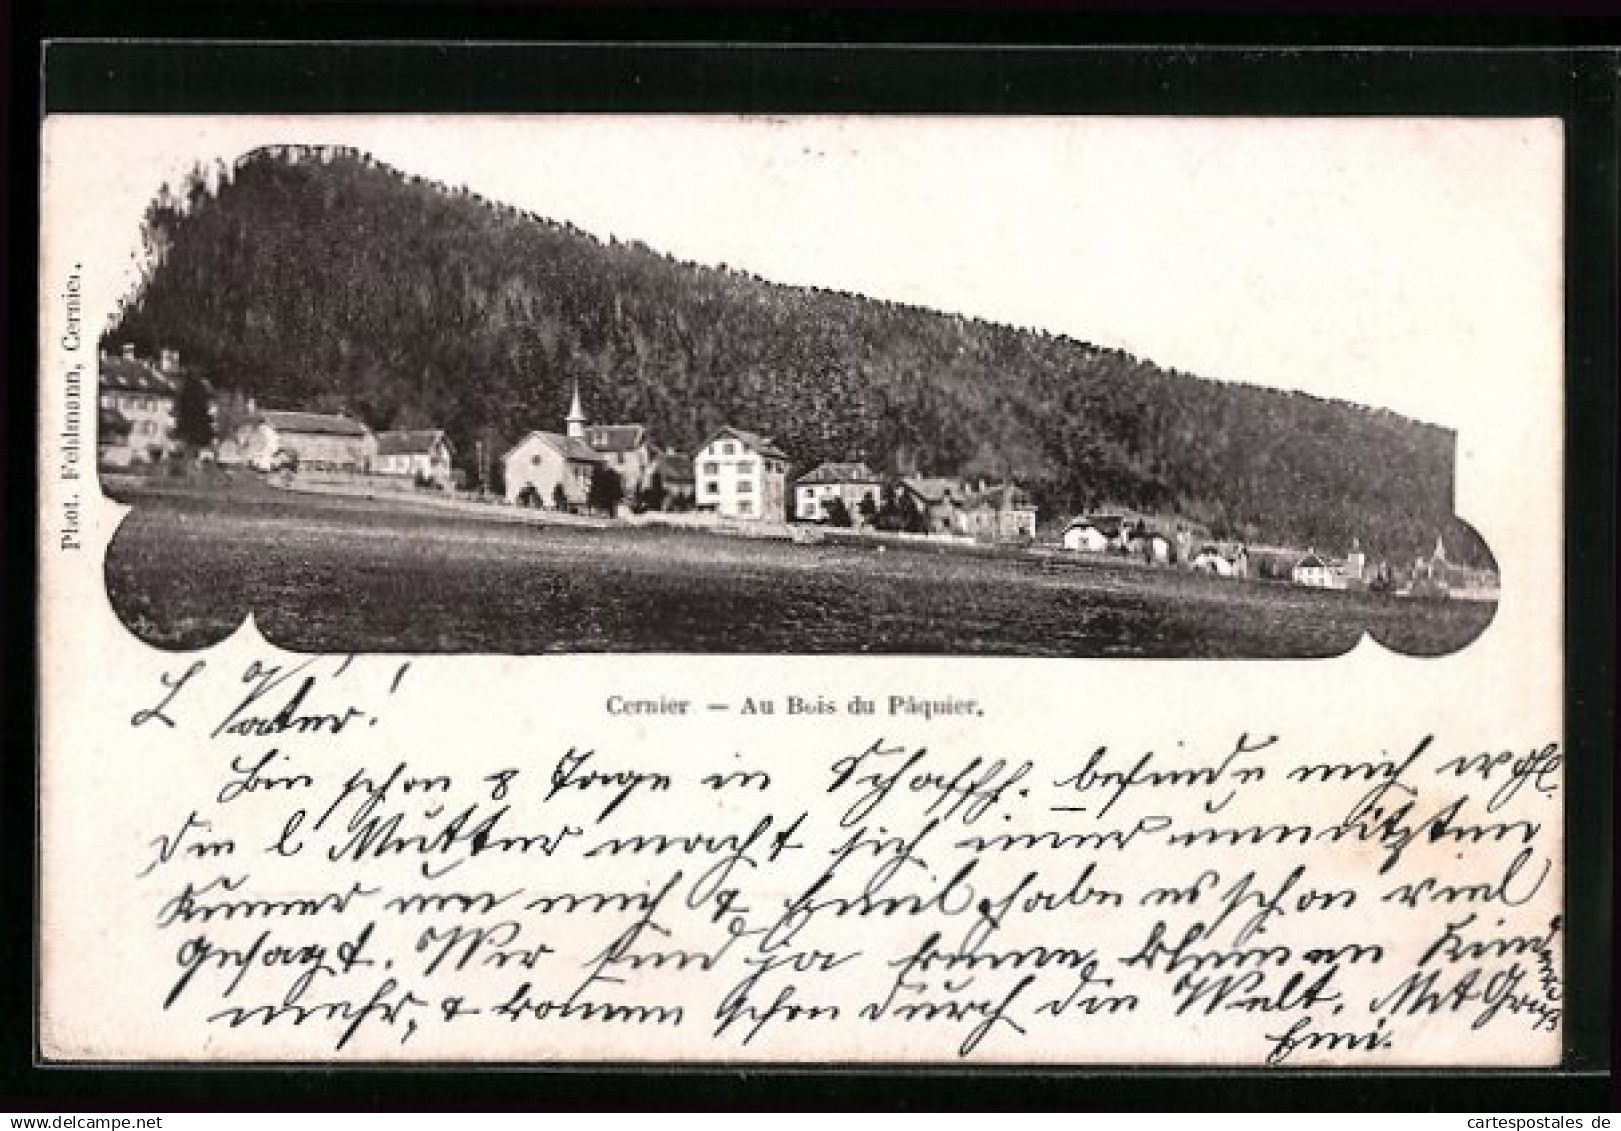 Phot. Fehlmann, Cernier.
Cernier. — Au Bois du Pâquier.
L Vater!
Bin schon 8 Tage in Schaffh. befinde mich
die l Mutter macht sich immer unnützten
Kummer um mich & Emil, habe es schon viel
gesagt. Wir sind ja keine kleinen Kinder
mehr, & kommen schon durch die Welt. Mit Gruß
Emi.
cartespostales de